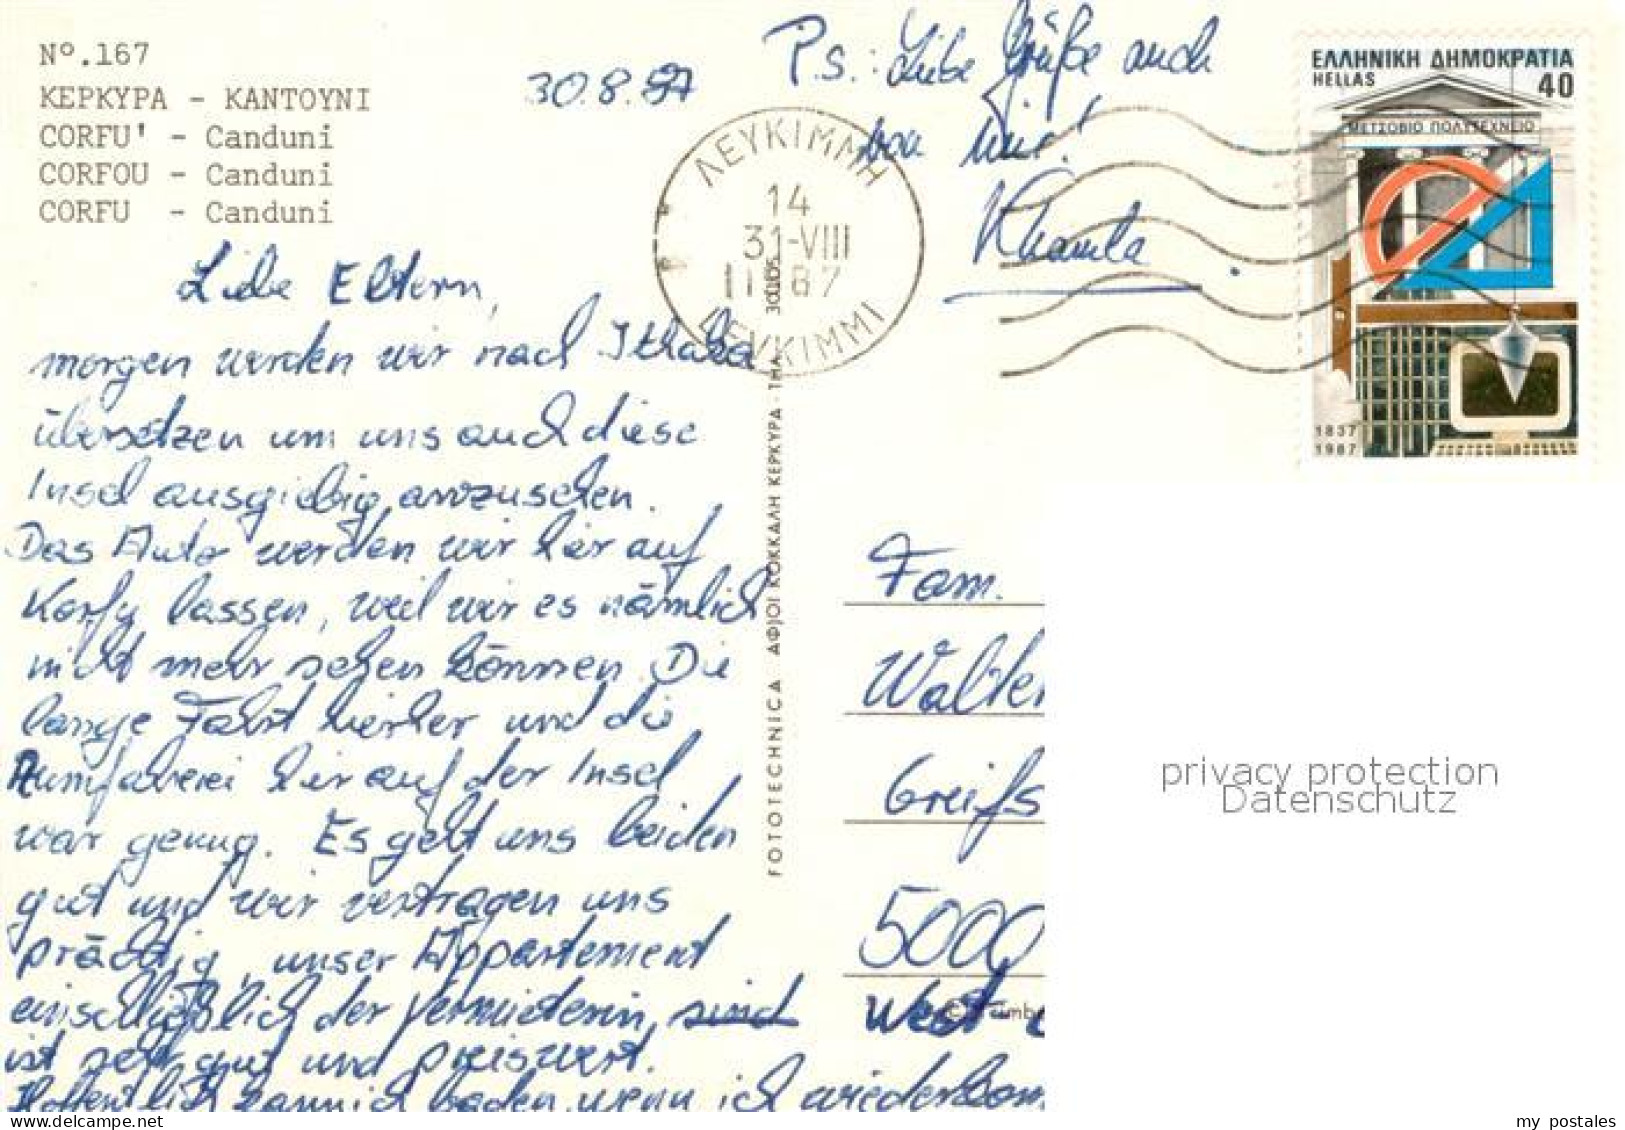 Nº.167
ΚΕΡΚΥΡΑ - ΚΑΝΤΟΥΝΙ
CORFU' - Canduni
CORFOU - Canduni
CORFU - Canduni
30.8.87
P.S.: Liebe Grüße auch
von mir!
ΛΕΥΚΙΜΜΗ
14
31-VIII
11 87
ΛΕΥΚΙΜΜΙ
ΕΛΛΗΝΙΚΗ ΔΗΜΟΚΡΑΤΙΑ
HELLAS 40
ΜΕΤΣΟΒΙΟ ΠΟΛΥΤΕΧΝΕΙΟ
1837
1987
Liebe Eltern,
morgen werden wir nach Ithaka
übersetzen um uns auch diese
Insel ausgiebig anzusehen.
Das Auto werden wir hier auf
Korfu lassen, weil wir es nämlich
nicht mehr sehen können. Die
lange Fahrt hierher und die
Rumfahrerei hier auf der Insel
war genug. Es geht uns beiden
gut und wir vertragen uns
prächtig, unser Appartement
einschließlich der Vermieterin, sind
ist sehr gut und preiswert.
Hoffentlich kann ich baden, wenn ich wiederkom
FOTOTECHNICA ΑΦΙΟΙ ΚΟΚΚΑΛΗ ΚΕΡΚΥΡΑ - ΤΗΛ
Fam.
Walter
Greifs
5000
West-
privacy protection
Datenschutz
my postales